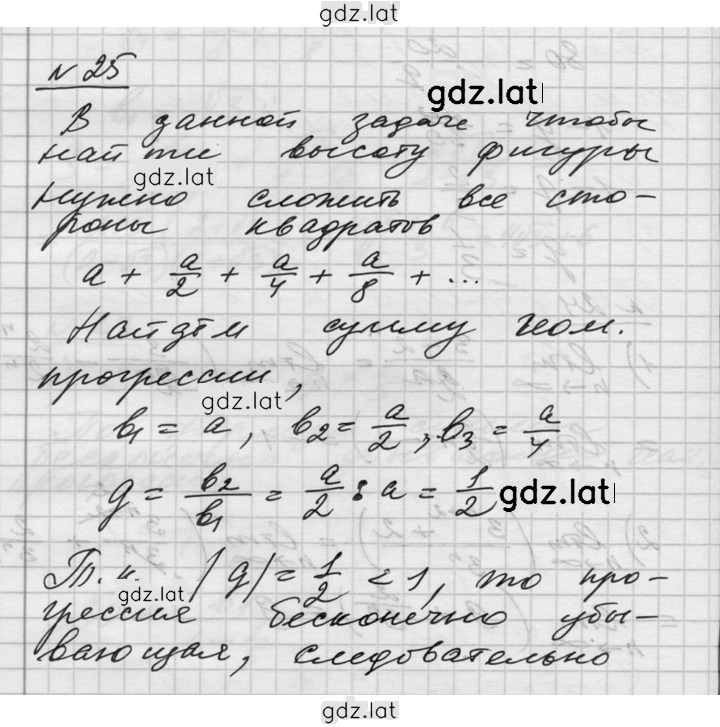 gdz.lat
N 25
gdz.lat
В данной задаче чтобы
найти высоту фигуры
gdz.lat
нужно сложить все сто-
роны квадратов
a + a/2 + a/4 + a/8 + ...
Найдём сумму геом.
прогрессии,
gdz.lat
b₁ = a, b₂ = a/2, b₃ = a/4
q = b₂/b₁ = a/2 : a = 1/2
gdz.lat
Т.к. |q| = 1/2 < 1, то про-
gdz.lat
грессия бесконечно убы-
вающая, следовательно
gdz.lat